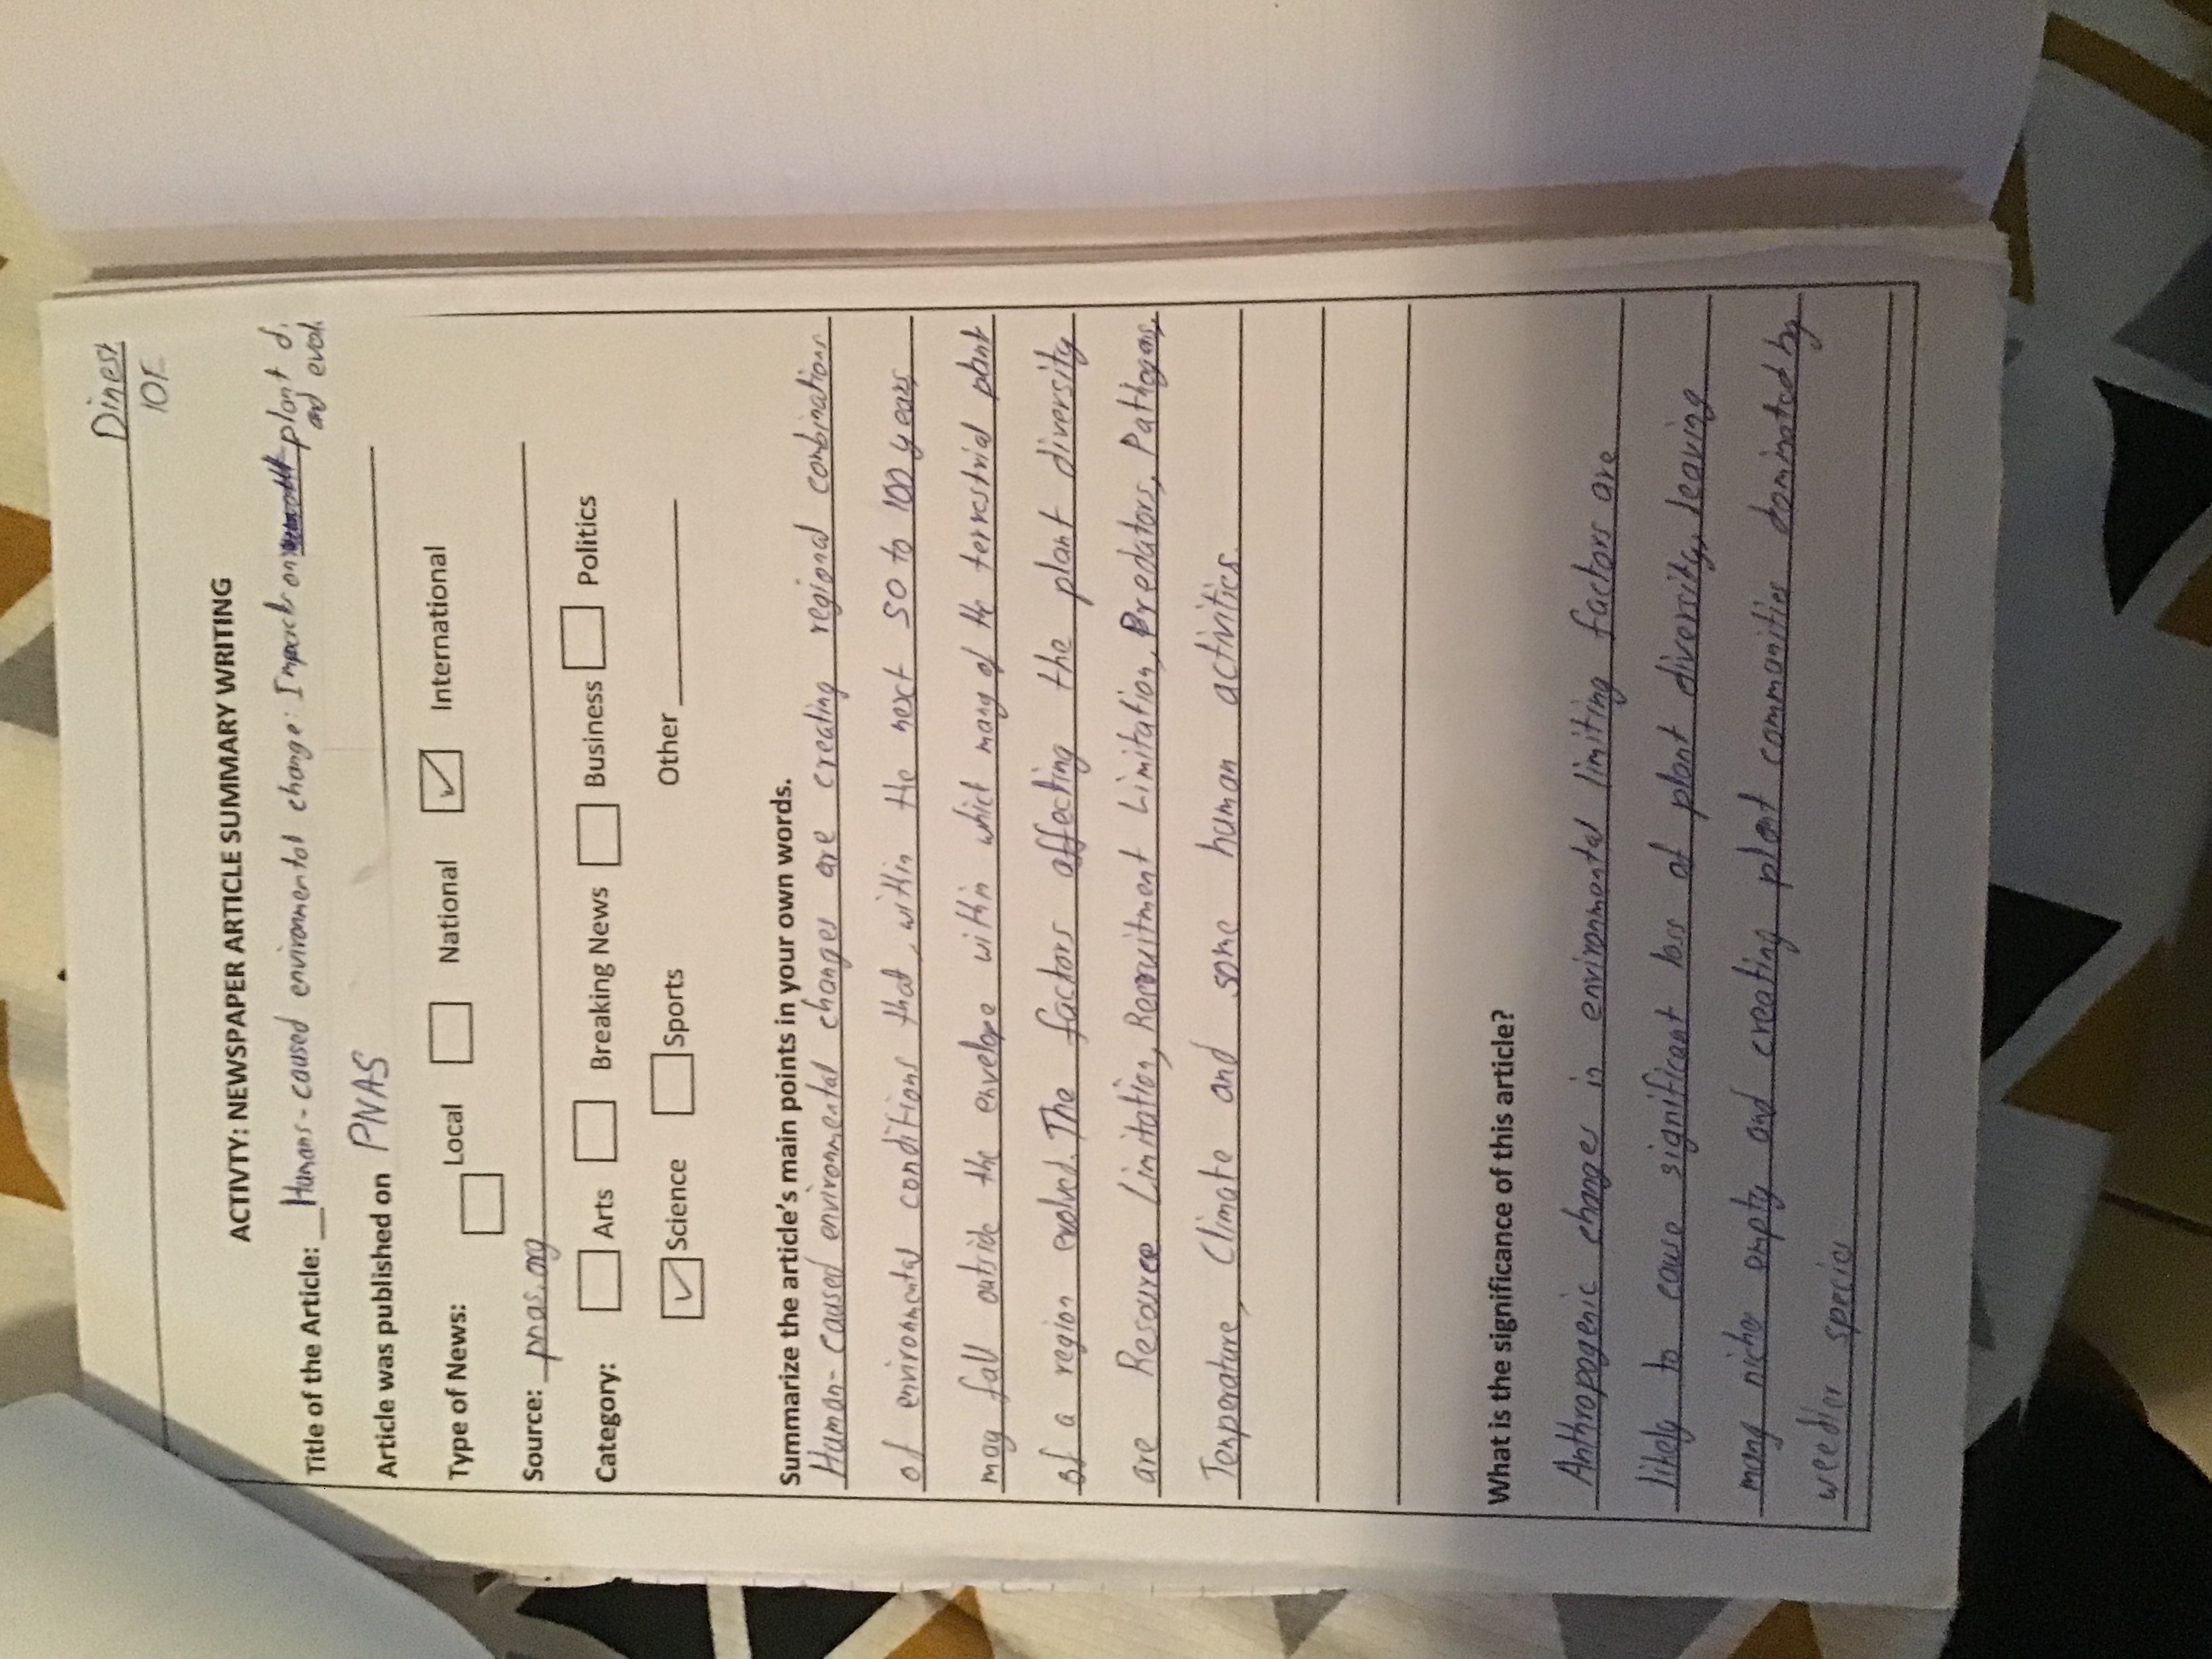 Dinesh
10F
ACTIVTY: NEWSPAPER ARTICLE SUMMARY WRITING
Title of the Article: Humans-caused environmental change: Impacts on plant d.
and evol.
Article was published on PNAS
Type of News: Local National International
Source: pnas.org
Category: Arts Breaking News Business Politics
Science Sports Other
Summarize the article's main points in your own words.
Human-caused environmental changes are creating regional combinations
of environmental conditions that, within the next 50 to 100 years,
may fall outside the envelope within which many of the terrestrial plant
of a region evolved. The factors affecting the plant diversity
are Resource Limitation, Recruitment Limitation, Predators, Pathogens,
Temperature, Climate and some human activities.
What is the significance of this article?
Anthropogenic changes in environmental limiting factors are
likely to cause significant loss of plant diversity, leaving
many niche empty and creating plant communities dominated by
weedier species